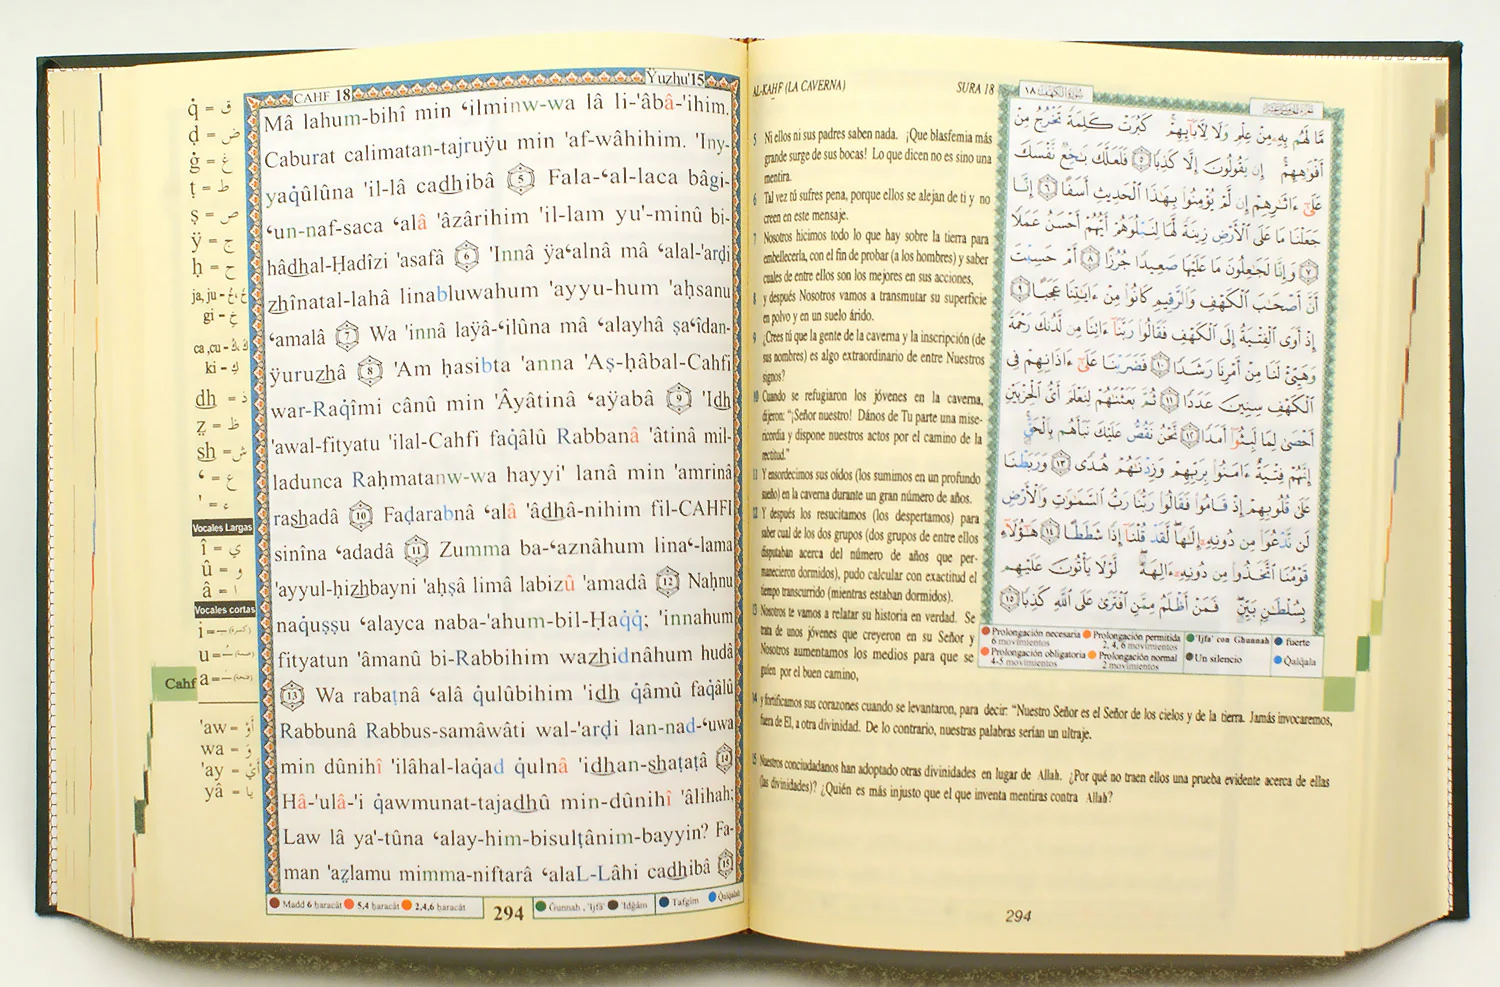 CAHF 18
Ÿuzhu'15
Mâ lahum-bihî min ʿilminw-wa lâ li-'âbâ-'ihim.
Caburat calimatan-tajruÿu min 'af-wâhihim. 'Iny-
yaq̇ûlûna 'il-lâ cadhibâ 5 Fala-ʿal-laca bâgi-
ʿun-naf-saca ʿalâ 'âzârihim 'il-lam yu'-minû bi-
hâdhal-Ḥadîzi 'asafâ 6 'Innâ ÿaʿalnâ mâ ʿalal-'arḍi
zhînatal-lahâ linabluwahum 'ayyu-hum 'aḥsanu
ʿamalâ 7 Wa 'innâ laÿâ-ʿilûna mâ ʿalayhâ ṣaʿîdan-
ÿuruzhâ 8 'Am ḥasibta 'anna 'Aṣ-ḥâbal-Cahfi
war-Raq̇îmi cânû min 'Âyâtinâ ʿaÿabâ 9 'Idh
'awal-fityatu 'ilal-Cahfi faq̇âlû Rabbanâ 'âtinâ mil-
ladunca Raḥmatanw-wa hayyi' lanâ min 'amrinâ
rashadâ 10 Faḍarabnâ ʿalâ 'âdhâ-nihim fil-CAHFI
sinîna ʿadadâ 11 Zumma ba-ʿaznâhum linaʿ-lama
'ayyul-ḥizhbayni 'aḥṣâ limâ labizû 'amadâ 12 Naḥnu
naq̇uṣṣu ʿalayca naba-'ahum-bil-Ḥaq̇q̇; 'innahum
fityatun 'âmanû bi-Rabbihim wazhidnâhum hudâ
13 Wa rabaṭnâ ʿalâ q̇ulûbihim 'idh q̇âmû faq̇âlû
Rabbunâ Rabbus-samâwâti wal-'arḍi lan-nad-ʿuwa
min dûnihî 'ilâhal-laq̇ad q̇ulnâ 'idhan-shaṭaṭâ 14
Hâ-'ulâ-'i q̇awmunat-tajadhû min-dûnihî 'âlihah;
Law lâ ya'-tûna ʿalay-him-bisulṭânim-bayyin? Fa-
man 'aẓlamu mimma-niftarâ ʿalaL-Lâhi cadhibâ 15
Madd 6 ḥaracât 5,4 ḥaracât 2,4,6 ḥaracât
294
Ġunnah , 'Ijfâ' 'Idġâm Tafgîm Q̇alq̇alah
q̇ = ق
ḍ = ض
ġ = غ
ṭ = ط
ṣ = ص
ÿ = ج
ḥ = ح
ja, ju - خَ، خُ
gi - خِ
ca ,cu - كَ، كُ
ki - كِ
dh = ذ
ẓ = ظ
sh = ش
ʿ = ع
' = ء
Vocales Largas
î = ي
û = و
â = ا
Vocales cortas
i = (كسرة)
u = (ضمة)
a = (فتحة)
Cahf
'aw = أَوْ
wa = وَ
'ay = أَيْ
yâ = يا
AL-KAHF (LA CAVERNA)
SURA 18
5 Ni ellos ni sus padres saben nada. ¡Que blasfemia más
grande surge de sus bocas! Lo que dicen no es sino una
mentira.
6 Tal vez tú sufres pena, porque ellos se alejan de ti y no
creen en este mensaje.
7 Nosotros hicimos todo lo que hay sobre la tierra para
embellecerla, con el fin de probar (a los hombres) y saber
cuales de entre ellos son los mejores en sus acciones,
8 y después Nosotros vamos a transmutar su superficie
en polvo y en un suelo árido.
9 ¿Crees tú que la gente de la caverna y la inscripción (de
sus nombres) es algo extraordinario de entre Nuestros
signos?
10 Cuando se refugiaron los jóvenes en la caverna,
dijeron: "¡Señor nuestro! Dános de Tu parte una mise-
ricordia y dispone nuestros actos por el camino de la
rectitud."
11 Y ensordecimos sus oídos (los sumimos en un profundo
sueño) en la caverna durante un gran número de años.
12 Y después los resucitamos (los despertamos) para
saber cual de los dos grupos (dos grupos de entre ellos
disputaban acerca del número de años que per-
manecieron dormidos), pudo calcular con exactitud el
tiempo transcurrido (mientras estaban dormidos).
13 Nosotros te vamos a relatar su historia en verdad. Se
trata de unos jóvenes que creyeron en su Señor y
Nosotros aumentamos los medios para que se
guíen por el buen camino,
14 y fortificamos sus corazones cuando se levantaron, para decir: "Nuestro Señor es el Señor de los cielos y de la tierra. Jamás invocaremos,
fuera de El, a otra divinidad. De lo contrario, nuestras palabras serían un ultraje.
15 Nuestros conciudadanos han adoptado otras divinidades en lugar de Allah. ¿Por qué no traen ellos una prueba evidente acerca de ellas
(las divinidades)? ¿Quién es más injusto que el que inventa mentiras contra Allah?
سُورَةُ الكَهْف ١٨
مَّا لَهُم بِهِ مِنْ عِلْمٍ وَلَا لِآبَائِهِمْ كَبُرَتْ كَلِمَةً تَخْرُجُ مِنْ
أَفْوَاهِهِمْ إِن يَقُولُونَ إِلَّا كَذِبًا ٥ فَلَعَلَّكَ بَاخِعٌ نَّفْسَكَ
عَلَىٰ ءَاثَارِهِمْ إِن لَّمْ يُؤْمِنُوا بِهَٰذَا الْحَدِيثِ أَسَفًا ٦ إِنَّا
جَعَلْنَا مَا عَلَى الْأَرْضِ زِينَةً لَّهَا لِنَبْلُوَهُمْ أَيُّهُمْ أَحْسَنُ عَمَلًا
٧ وَإِنَّا لَجَاعِلُونَ مَا عَلَيْهَا صَعِيدًا جُرُزًا ٨ أَمْ حَسِبْتَ
أَنَّ أَصْحَابَ الْكَهْفِ وَالرَّقِيمِ كَانُوا مِنْ ءَايَاتِنَا عَجَبًا ٩
إِذْ أَوَى الْفِتْيَةُ إِلَى الْكَهْفِ فَقَالُوا رَبَّنَا ءَاتِنَا مِن لَّدُنكَ رَحْمَةً
وَهَيِّئْ لَنَا مِنْ أَمْرِنَا رَشَدًا ١٠ فَضَرَبْنَا عَلَىٰ ءَاذَانِهِمْ فِي
الْكَهْفِ سِنِينَ عَدَدًا ١١ ثُمَّ بَعَثْنَاهُمْ لِنَعْلَمَ أَيُّ الْحِزْبَيْنِ
أَحْصَىٰ لِمَا لَبِثُوا أَمَدًا ١٢ نَحْنُ نَقُصُّ عَلَيْكَ نَبَأَهُم بِالْحَقِّ
إِنَّهُمْ فِتْيَةٌ ءَامَنُوا بِرَبِّهِمْ وَزِدْنَاهُمْ هُدًى ١٣ وَرَبَطْنَا
عَلَىٰ قُلُوبِهِمْ إِذْ قَامُوا فَقَالُوا رَبُّنَا رَبُّ السَّمَاوَاتِ وَالْأَرْضِ
لَن نَّدْعُوَا مِن دُونِهِ إِلَٰهًا لَّقَدْ قُلْنَا إِذًا شَطَطًا ١٤ هَٰؤُلَاءِ
قَوْمُنَا اتَّخَذُوا مِن دُونِهِ ءَالِهَةً لَّوْلَا يَأْتُونَ عَلَيْهِم
بِسُلْطَانٍ بَيِّنٍ فَمَنْ أَظْلَمُ مِمَّنِ افْتَرَىٰ عَلَى اللَّهِ كَذِبًا ١٥
Prolongación necesaria 6 movimientos
Prolongación permitida 2, 4, 6 movimientos
'Ijfa' con Ghunnah
fuerte
Prolongación obligatoria 4-5 movimientos
Prolongación normal 2 movimientos
Un silencio
Qalqala
294